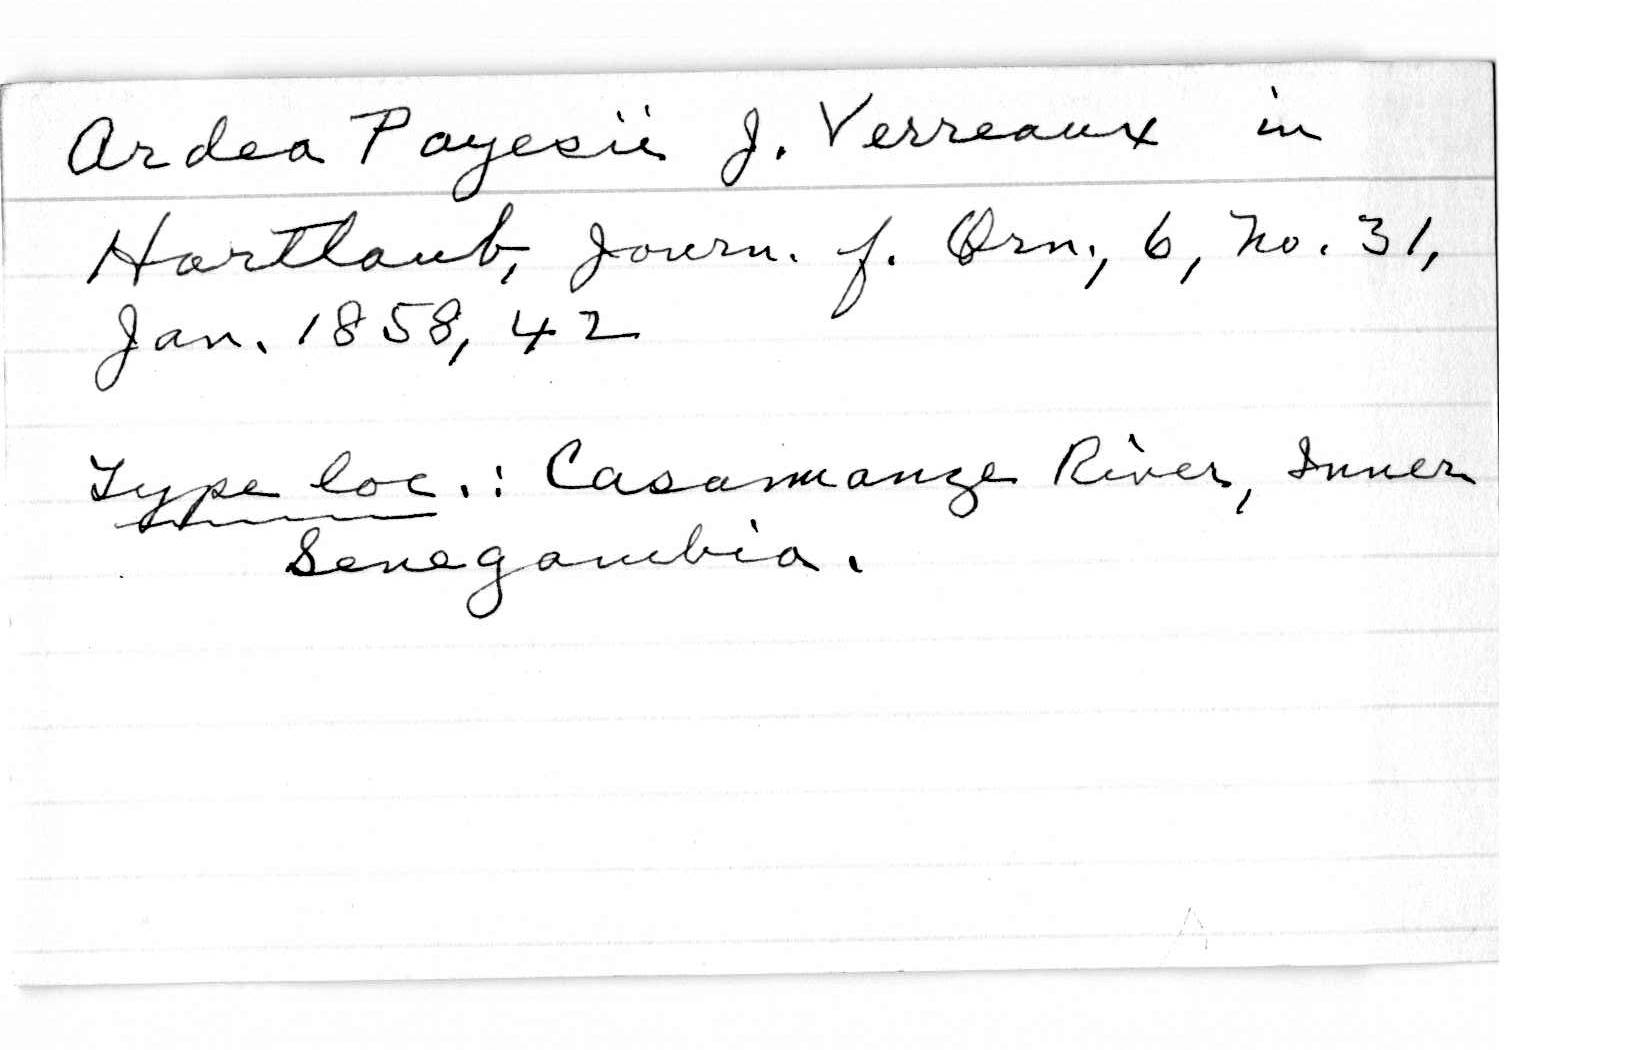 Ardea Payesii J. Verreaux in
Hartlaub, Journ. f. Orn., 6, no. 31,
Jan. 1858, 42
Type loc.: Casamanze River, Inner
Senegambia.